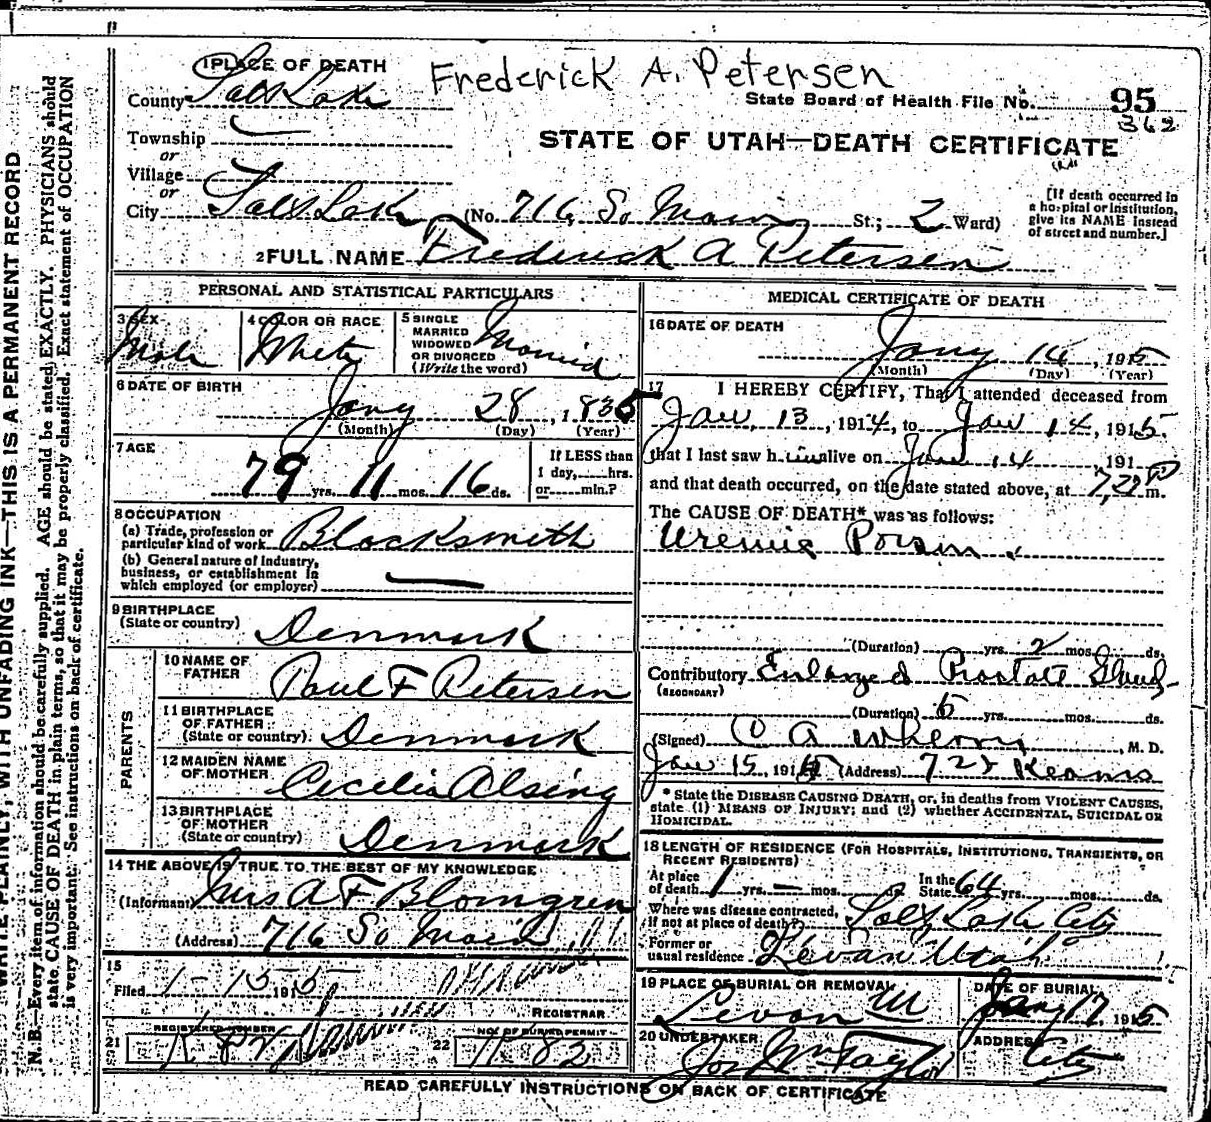 1 PLACE OF DEATH
Frederick A. Petersen
County Salt Lake
State Board of Health File No. 95
362
Township
or
STATE OF UTAH—DEATH CERTIFICATE
Village
or
City Salt Lake (No. 716 So Main St.; 2 Ward)
[If death occurred in
a hospital or institution,
give its NAME instead
of street and number.]
2 FULL NAME Frederick A Petersen
PERSONAL AND STATISTICAL PARTICULARS
3 SEX
Male
4 COLOR OR RACE
White
5 SINGLE
MARRIED
WIDOWED
OR DIVORCED
(Write the word)
Married
6 DATE OF BIRTH
Jany 28, 1835
(Month) (Day) (Year)
7 AGE
79 yrs. 11 mos. 16 ds.
If LESS than
1 day, hrs.
or min.?
8 OCCUPATION
(a) Trade, profession or
particular kind of work Blacksmith
(b) General nature of industry,
business, or establishment in
which employed (or employer)
9 BIRTHPLACE
(State or country) Denmark
PARENTS
10 NAME OF
FATHER Paul F Petersen
11 BIRTHPLACE
OF FATHER
(State or country) Denmark
12 MAIDEN NAME
OF MOTHER Cecelia Alsing
13 BIRTHPLACE
OF MOTHER
(State or country) Denmark
14 THE ABOVE IS TRUE TO THE BEST OF MY KNOWLEDGE
(Informant) Mrs A F Blomgren
(Address) 716 So Main
15
Filed 1-15 1915
REGISTRAR
21 REGISTERED NUMBER
K 82
22 NO. OF BURIAL PERMIT
K 82
MEDICAL CERTIFICATE OF DEATH
16 DATE OF DEATH
Jany 14, 1915
(Month) (Day) (Year)
17 I HEREBY CERTIFY, That I attended deceased from
Jan. 13, 1914, to Jan 14, 1915.
that I last saw him alive on Jan 14, 191
and that death occurred, on the date stated above, at P m.
The CAUSE OF DEATH* was as follows:
Uremic Poison
(Duration) yrs. 2 mos. ds.
Contributory Enlarged Prostate Gland
(SECONDARY)
(Duration) 5 yrs. mos. ds.
(Signed) M. D.
Jan 15, 1915 (Address) Kearns
* State the DISEASE CAUSING DEATH, or, in deaths from VIOLENT CAUSES,
state (1) MEANS OF INJURY; and (2) whether ACCIDENTAL, SUICIDAL OR
HOMICIDAL.
18 LENGTH OF RESIDENCE (FOR HOSPITALS, INSTITUTIONS, TRANSIENTS, OR
RECENT RESIDENTS)
At place
of death 1 yrs. – mos. ds.
In the
State 64 yrs. mos. ds.
Where was disease contracted,
if not at place of death? Salt Lake City
Former or
usual residence Levan Utah
19 PLACE OF BURIAL OR REMOVAL
Levan U
DATE OF BURIAL
Jany 17, 1915
20 UNDERTAKER
Jos Wm Taylor
ADDRESS
City
READ CAREFULLY INSTRUCTIONS ON BACK OF CERTIFICATE
WRITE PLAINLY, WITH UNFADING INK—THIS IS A PERMANENT RECORD
N. B.—Every item of information should be carefully supplied. AGE should be stated EXACTLY. PHYSICIANS should
state CAUSE OF DEATH in plain terms, so that it may be properly classified. Exact statement of OCCUPATION
is very important. See instructions on back of certificate.